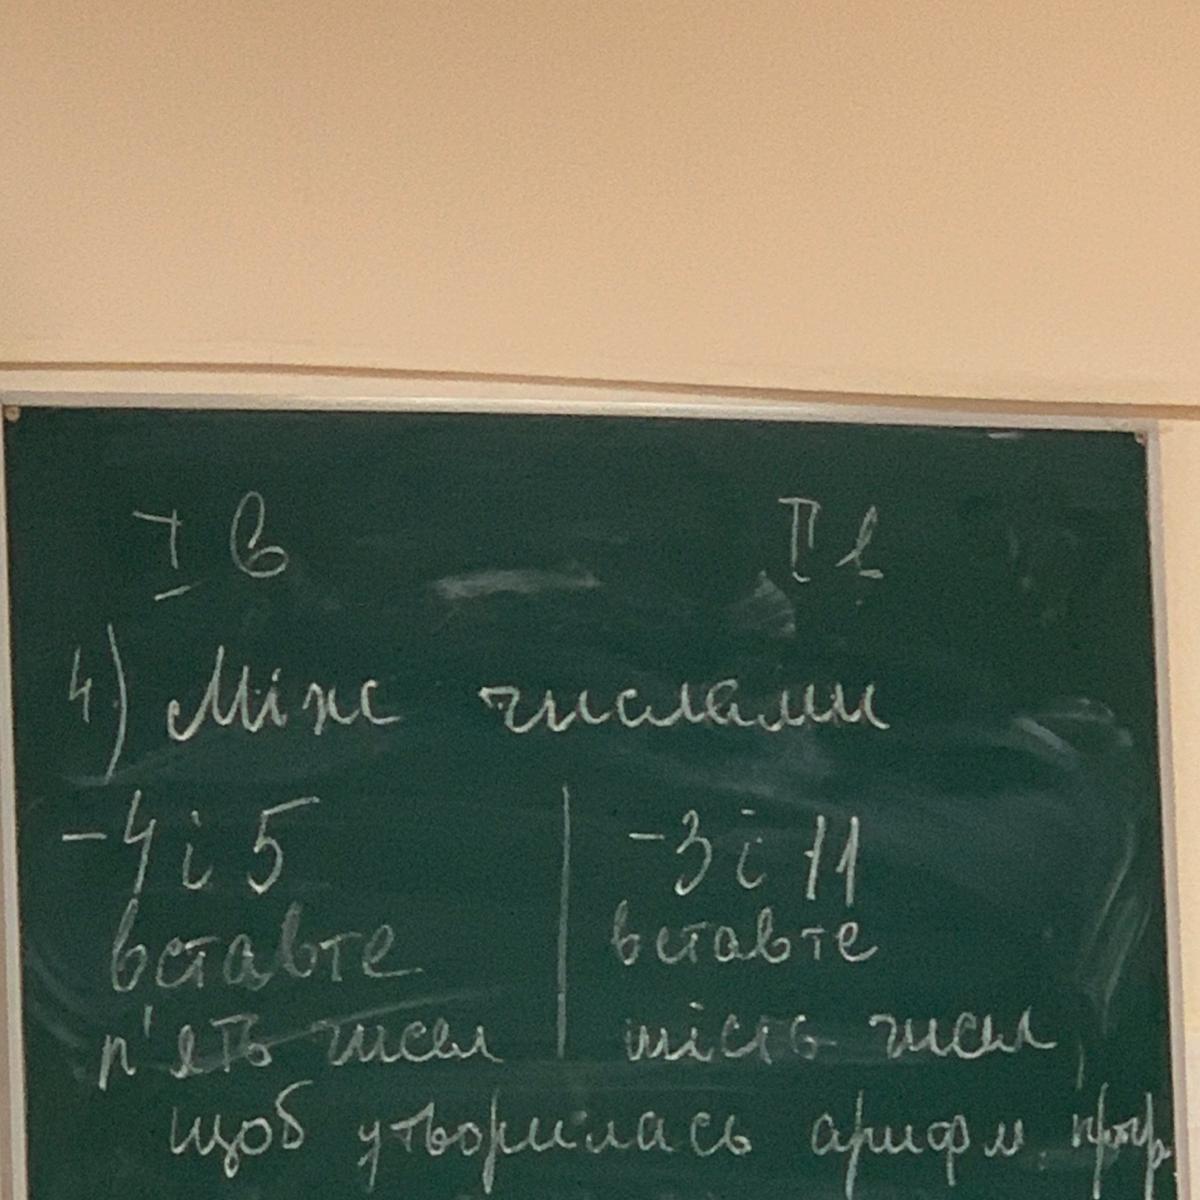 I в II в
4) Між числами
-4 і 5 -3 і 11
вставте вставте
п'ять чисел шість чисел
щоб утворилась арифм. прогр.